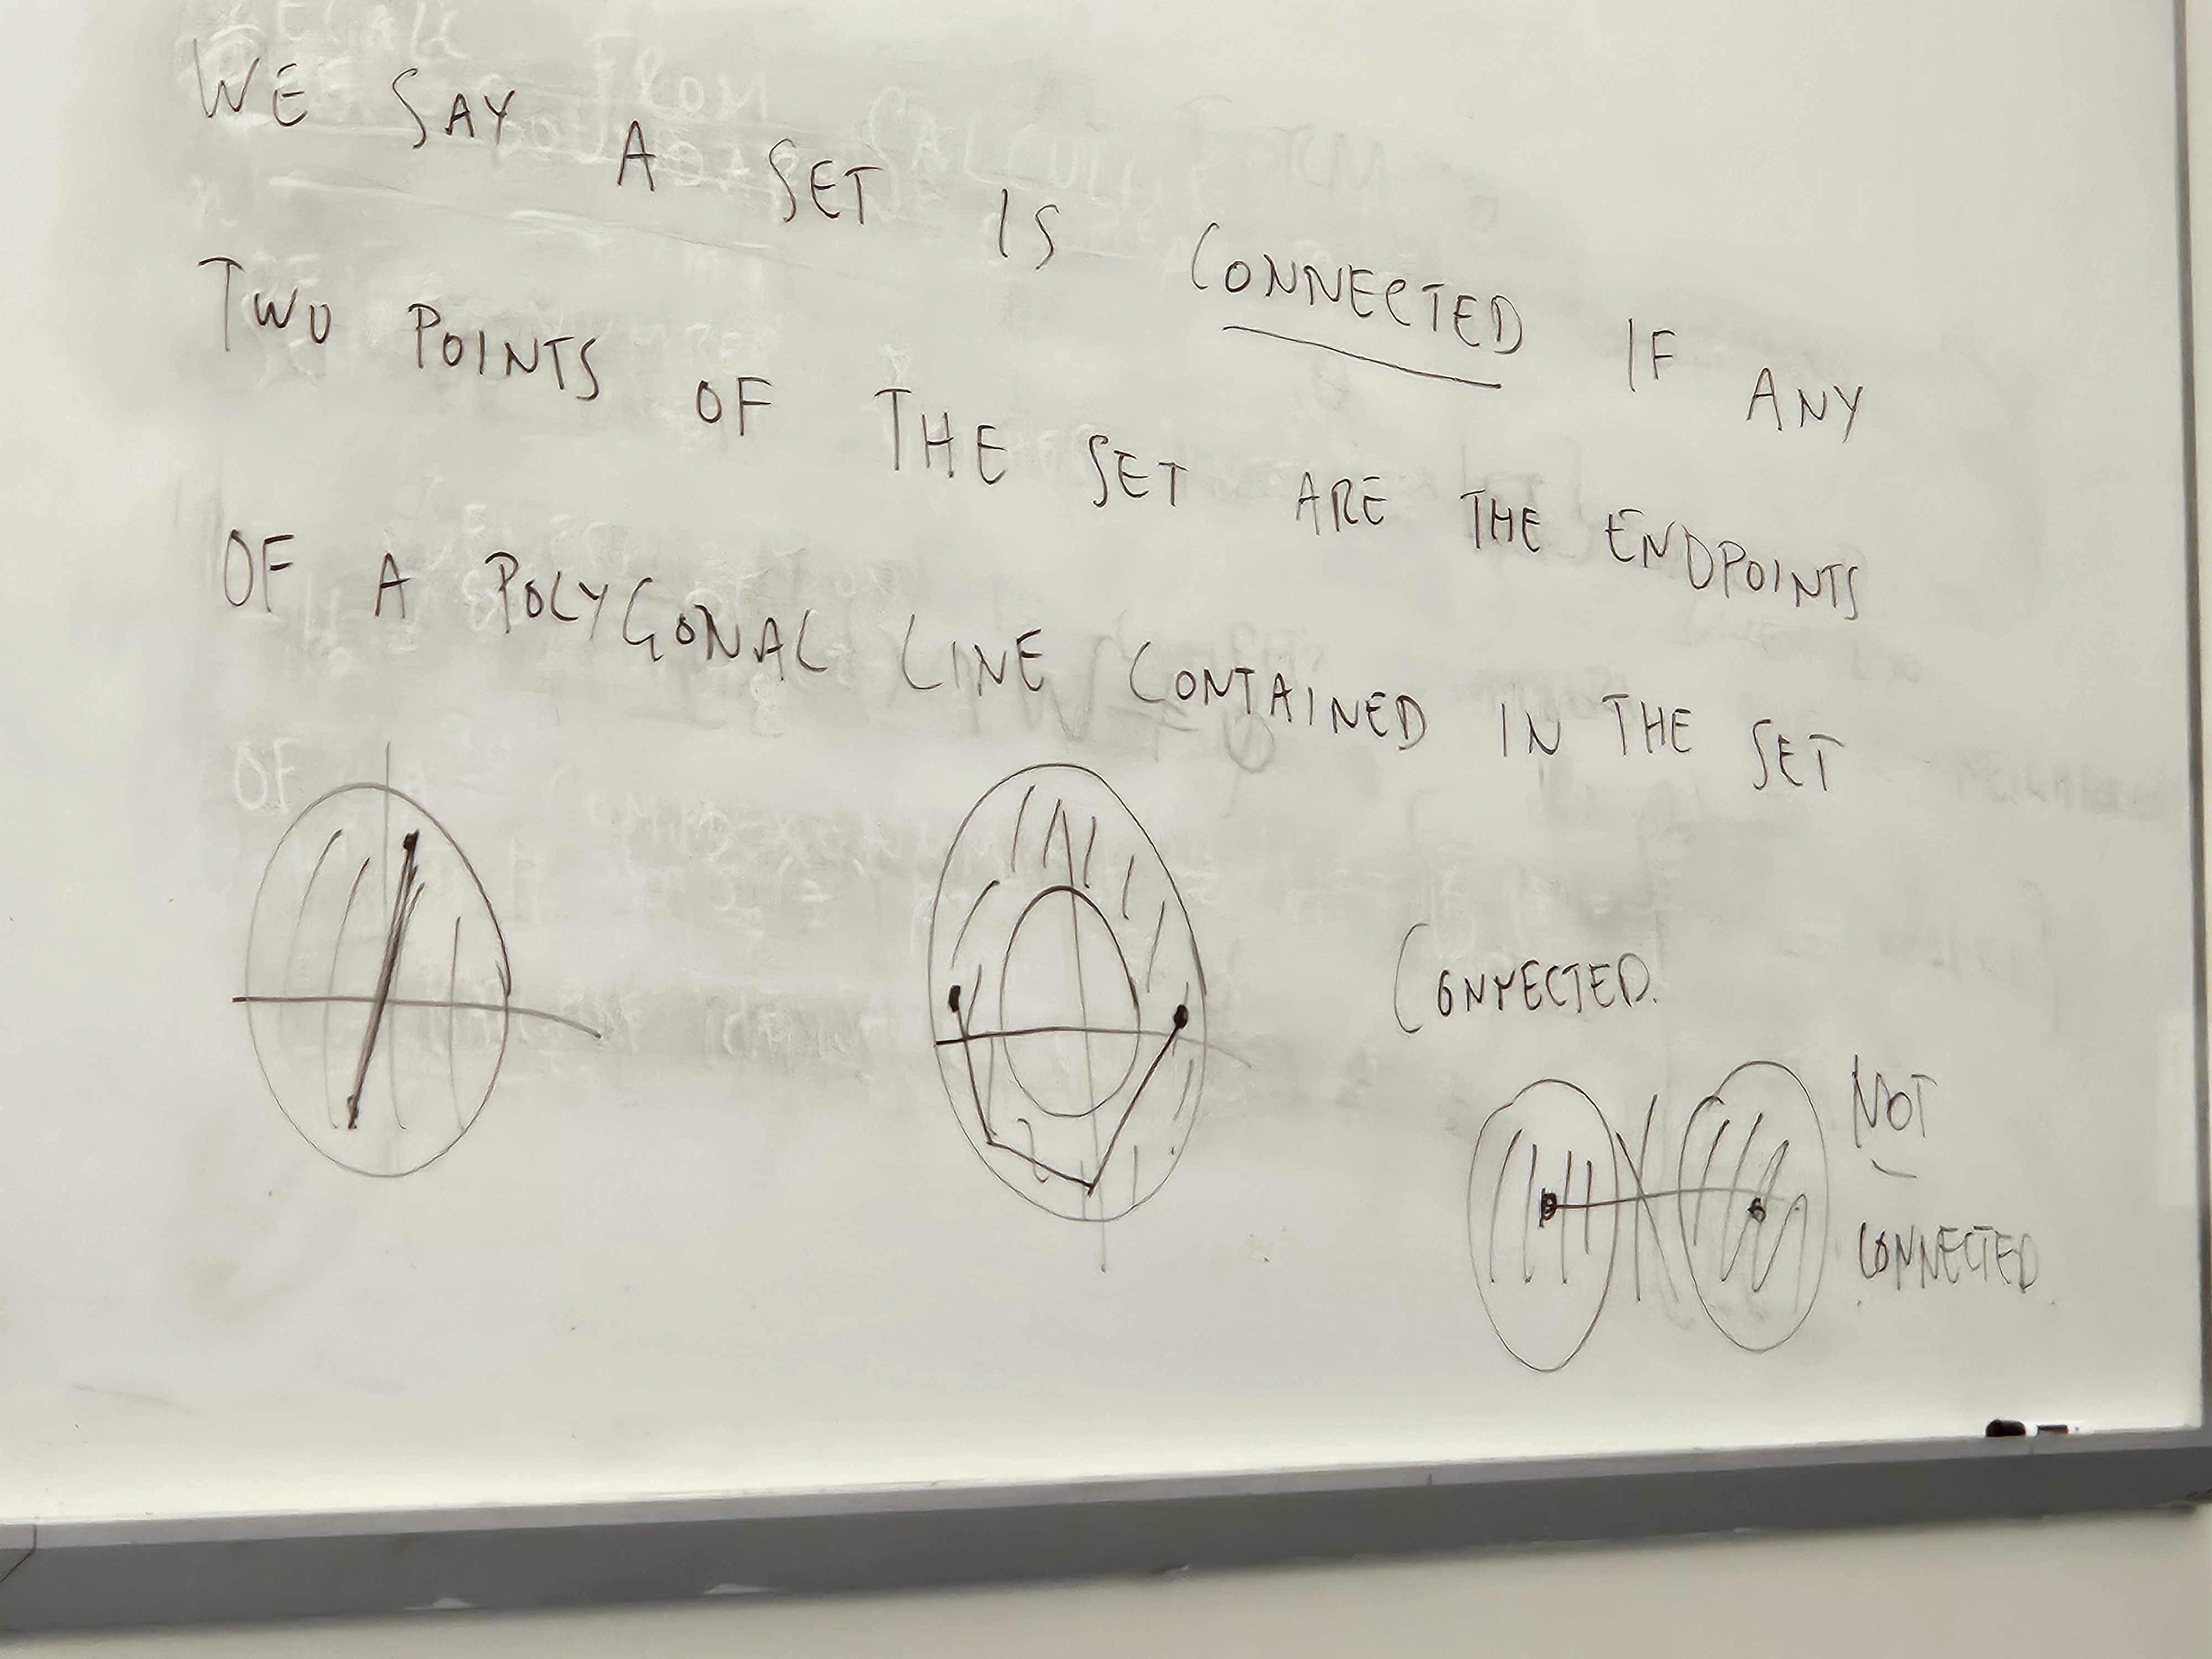 WE SAY A SET IS CONNECTED IF ANY
TWO POINTS OF THE SET ARE THE ENDPOINTS
OF A POLYGONAL LINE CONTAINED IN THE SET
OF
CONNECTED.
NOT
CONNECTED.